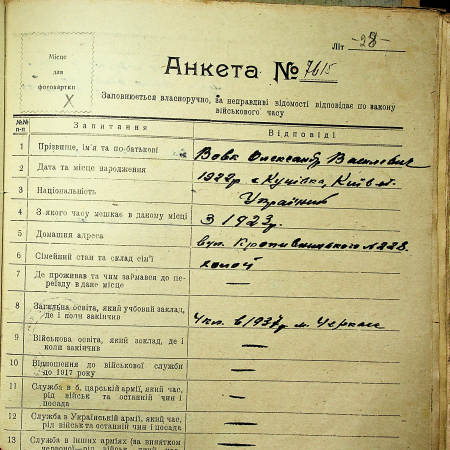 Літ -28-
Місце
для
фотокартки
Анкета № 7615
Заповнюється власноручно, за неправдиві відомості відповідає по закону
військового часу
№№ п-п Запитання Відповіді
1 Прізвище, ім'я та по-батькові Вовк Олександр Васильович
2 Дата та місце народження 1922р с. Куцівка, Київ. об.
3 Національність Українець
4 З якого часу мешкає в даному місці З 1923р.
5 Домашня адреса вул. Кропивницького №228.
6 Сімейний стан та склад сім'ї холост
7 Де проживав та чим займався до пе-
реїзду в дане місце —
8 Загальна освіта, який учбовий заклад,
де і коли закінчив 4 кл. в 1937р м. Черкас
9 Військова освіта, який заклад, де і
коли закінчив —
10 Відношення до військової служби
до 1917 року —
11 Служба в б. царській армії, який час,
рід військ та останній чин і
посада —
12 Служба в Українській армії, який час,
рід військ та останній чин і посада —
13 Служба в інших арміях (за винятком
червоної)